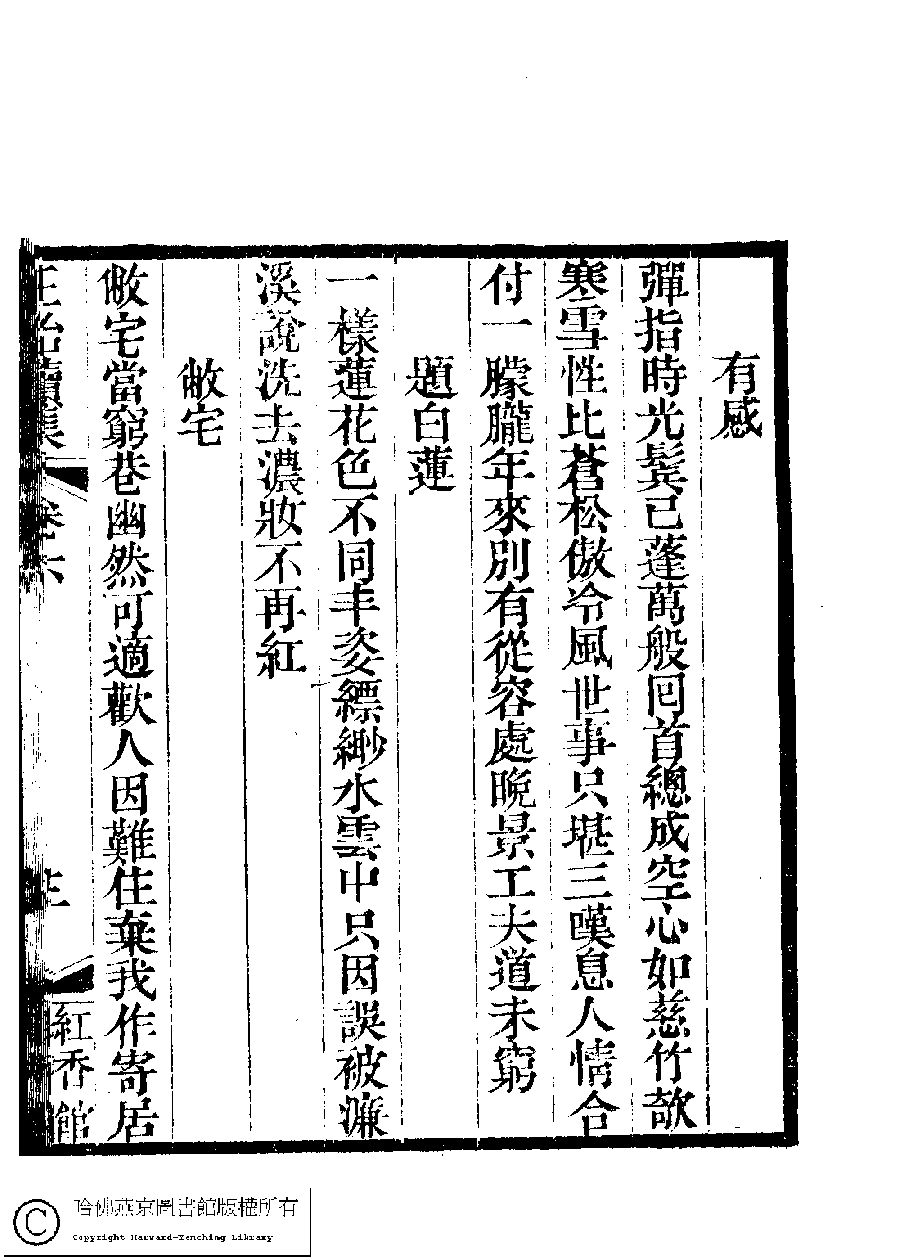 有感
彈指時光鬂已蓬萬般回首總成空心如慈竹欹
寒雪性比蒼松傲冷風世事只堪三嘆息人情合
付一朦朧年來別有從容處晚景工夫道未窮
題白蓮
一樣蓮花色不同丰姿縹緲水雲中只因誤被濂
溪說洗去濃妝不再紅
敝宅
敝宅當窮巷幽然可適歡人因難住棄我作寄居
正始續集
卷六
紅香館
哈佛燕京圖書館版權所有
Copyright Harvard-Yenching Library